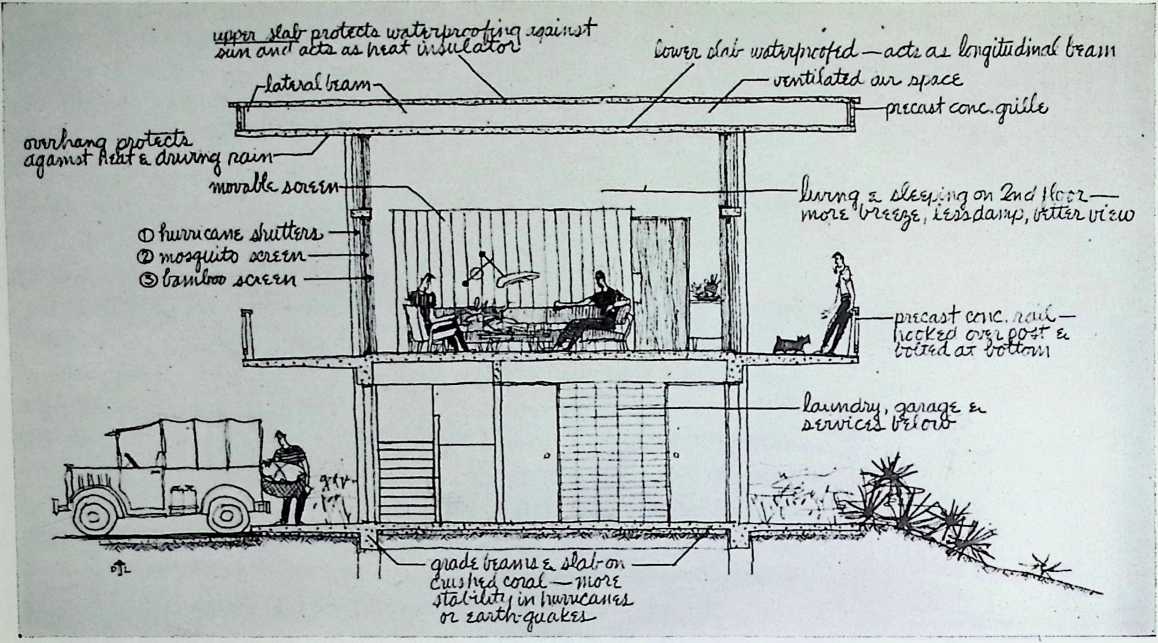 upper slab protects waterproofing against
sun and acts as heat insulator
lower slab waterproofed — acts as longitudinal beam
lateral beam
ventilated air space
precast conc. grille
overhang protects
against heat & driving rain
movable screen
living & sleeping on 2nd floor —
more breeze, less damp, better view
① hurricane shutters
② mosquito screen
③ bamboo screen
precast conc. rail —
hooked over post &
bolted at bottom
laundry, garage &
services below
grade beams & slab on
crushed coral — more
stability in hurricanes
or earth-quakes